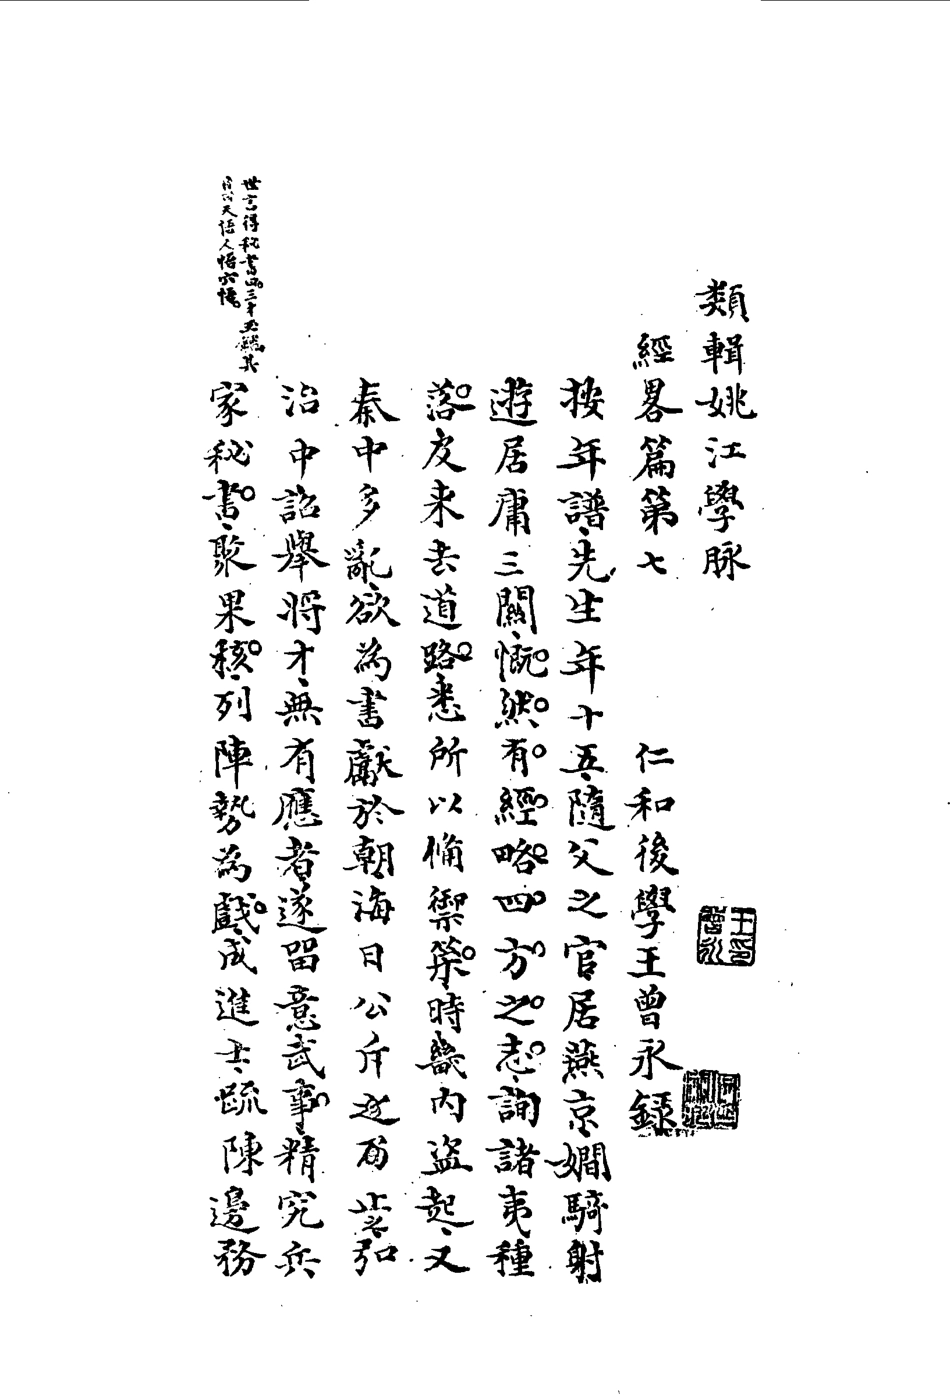 類輯姚江學脉
經畧篇第七 仁和後學王曾永錄
按年譜先生年十五隨父之官居燕京嫺騎射
遊居庸三關慨然有經略四方之志詢諸夷種
落及來去道路悉所以備禦䇿時畿内盜起又
秦中多亂欲為書獻於朝海日公斥之而止弘
治中詔舉將才無有應者遂留意武事精究兵
家秘書聚果核列陣勢為戲成進士疏陳邊務
世言得秘書四三十五
其
天悟人悟